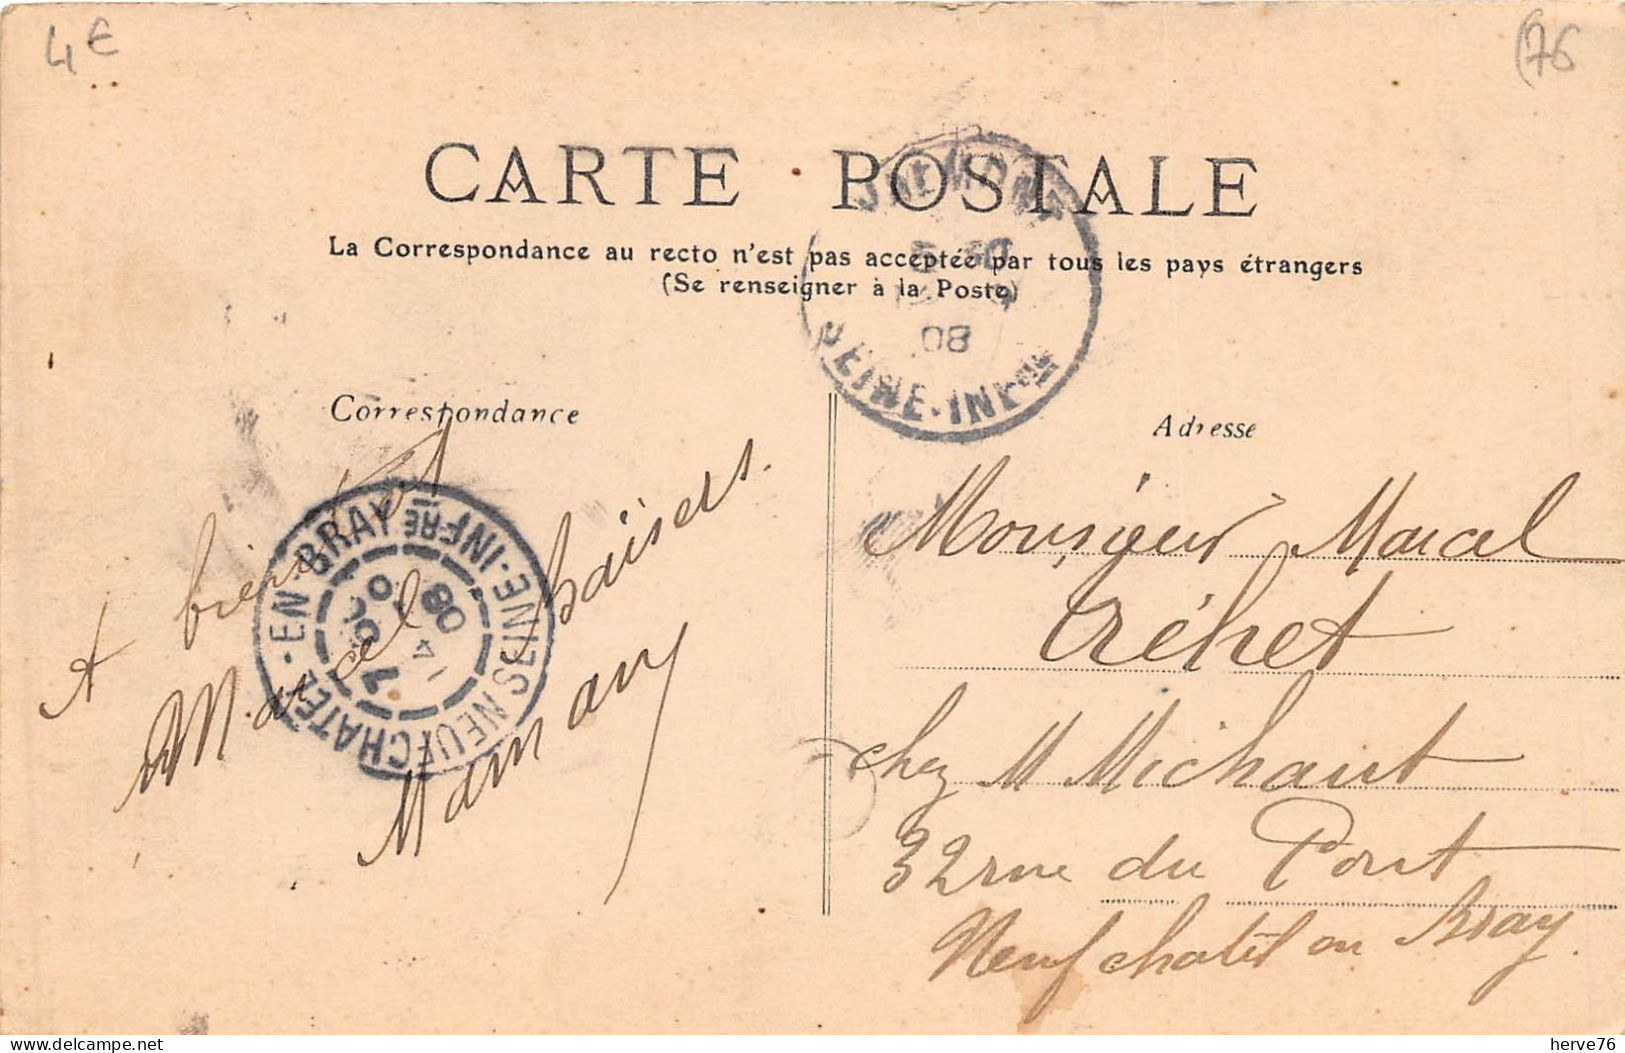 4€
(76
CARTE POSTALE
La Correspondance au recto n'est pas acceptée par tous les pays étrangers
(Se renseigner à la Poste)
08
SEINE-INFRE
Correspondance
A bientôt
Marcel baisers.
Mamany
NEUFCHATEL-EN-BRAY
SEINE-INFRE
08
Adresse
Monsieur Marcel
Créhet
chez M Michaut
32 rue du Pont
Neufchatel en Bray.
delcampe.net
herve76